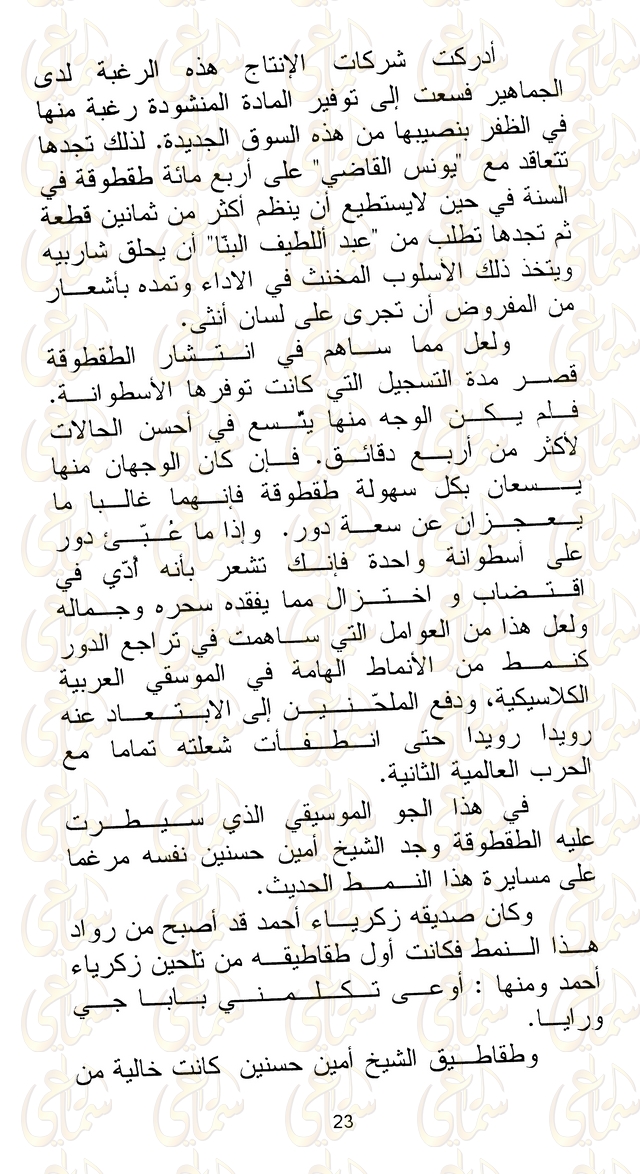 أدركت شركات الإنتاج هذه الرغبة لدى
الجماهير فسعت إلى توفير المادة المنشودة رغبة منها
في الظفر بنصيبها من هذه السوق الجديدة. لذلك تجدها
تتعاقد مع "يونس القاضي" على أربع مائة طقطوقة في
السنة في حين لايستطيع أن ينظم أكثر من ثمانين قطعة
ثم تجدها تطلب من "عبد أللطيف البنّا" أن يحلق شاربيه
ويتخذ ذلك الأسلوب المخنث في الاداء وتمده بأشعار
من المفروض أن تجرى على لسان أنثى.
ولعل مما ساهم في انتشار الطقطوقة
قصر مدة التسجيل التي كانت توفرها الأسطوانة.
فلم يكن الوجه منها يتّسع في أحسن الحالات
لأكثر من أربع دقائق. فإن كان الوجهان منها
يسعان بكل سهولة طقطوقة فإنهما غالبا ما
يعجزان عن سعة دور. وإذا ما عُبّئ دور
على أسطوانة واحدة فإنك تشعر بأنه أدّي في
اقتضاب و اختزال مما يفقده سحره وجماله
ولعل هذا من العوامل التي ساهمت في تراجع الدور
كنمط من الأنماط الهامة في الموسقي العربية
الكلاسيكية، ودفع الملحّنين إلى الابتعاد عنه
رويدا رويدا حتى انطفأت شعلته تماما مع
الحرب العالمية الثانية.
في هذا الجو الموسيقي الذي سيطرت
عليه الطقطوقة وجد الشيخ أمين حسنين نفسه مرغما
على مسايرة هذا النمط الحديث.
وكان صديقه زكرياء أحمد قد أصبح من رواد
هذا النمط فكانت أول طقاطيقه من تلحين زكرياء
أحمد ومنها : أوعى تكلمني بابا جي
ورايا.
وطقاطيق الشيخ أمين حسنين كانت خالية من
23